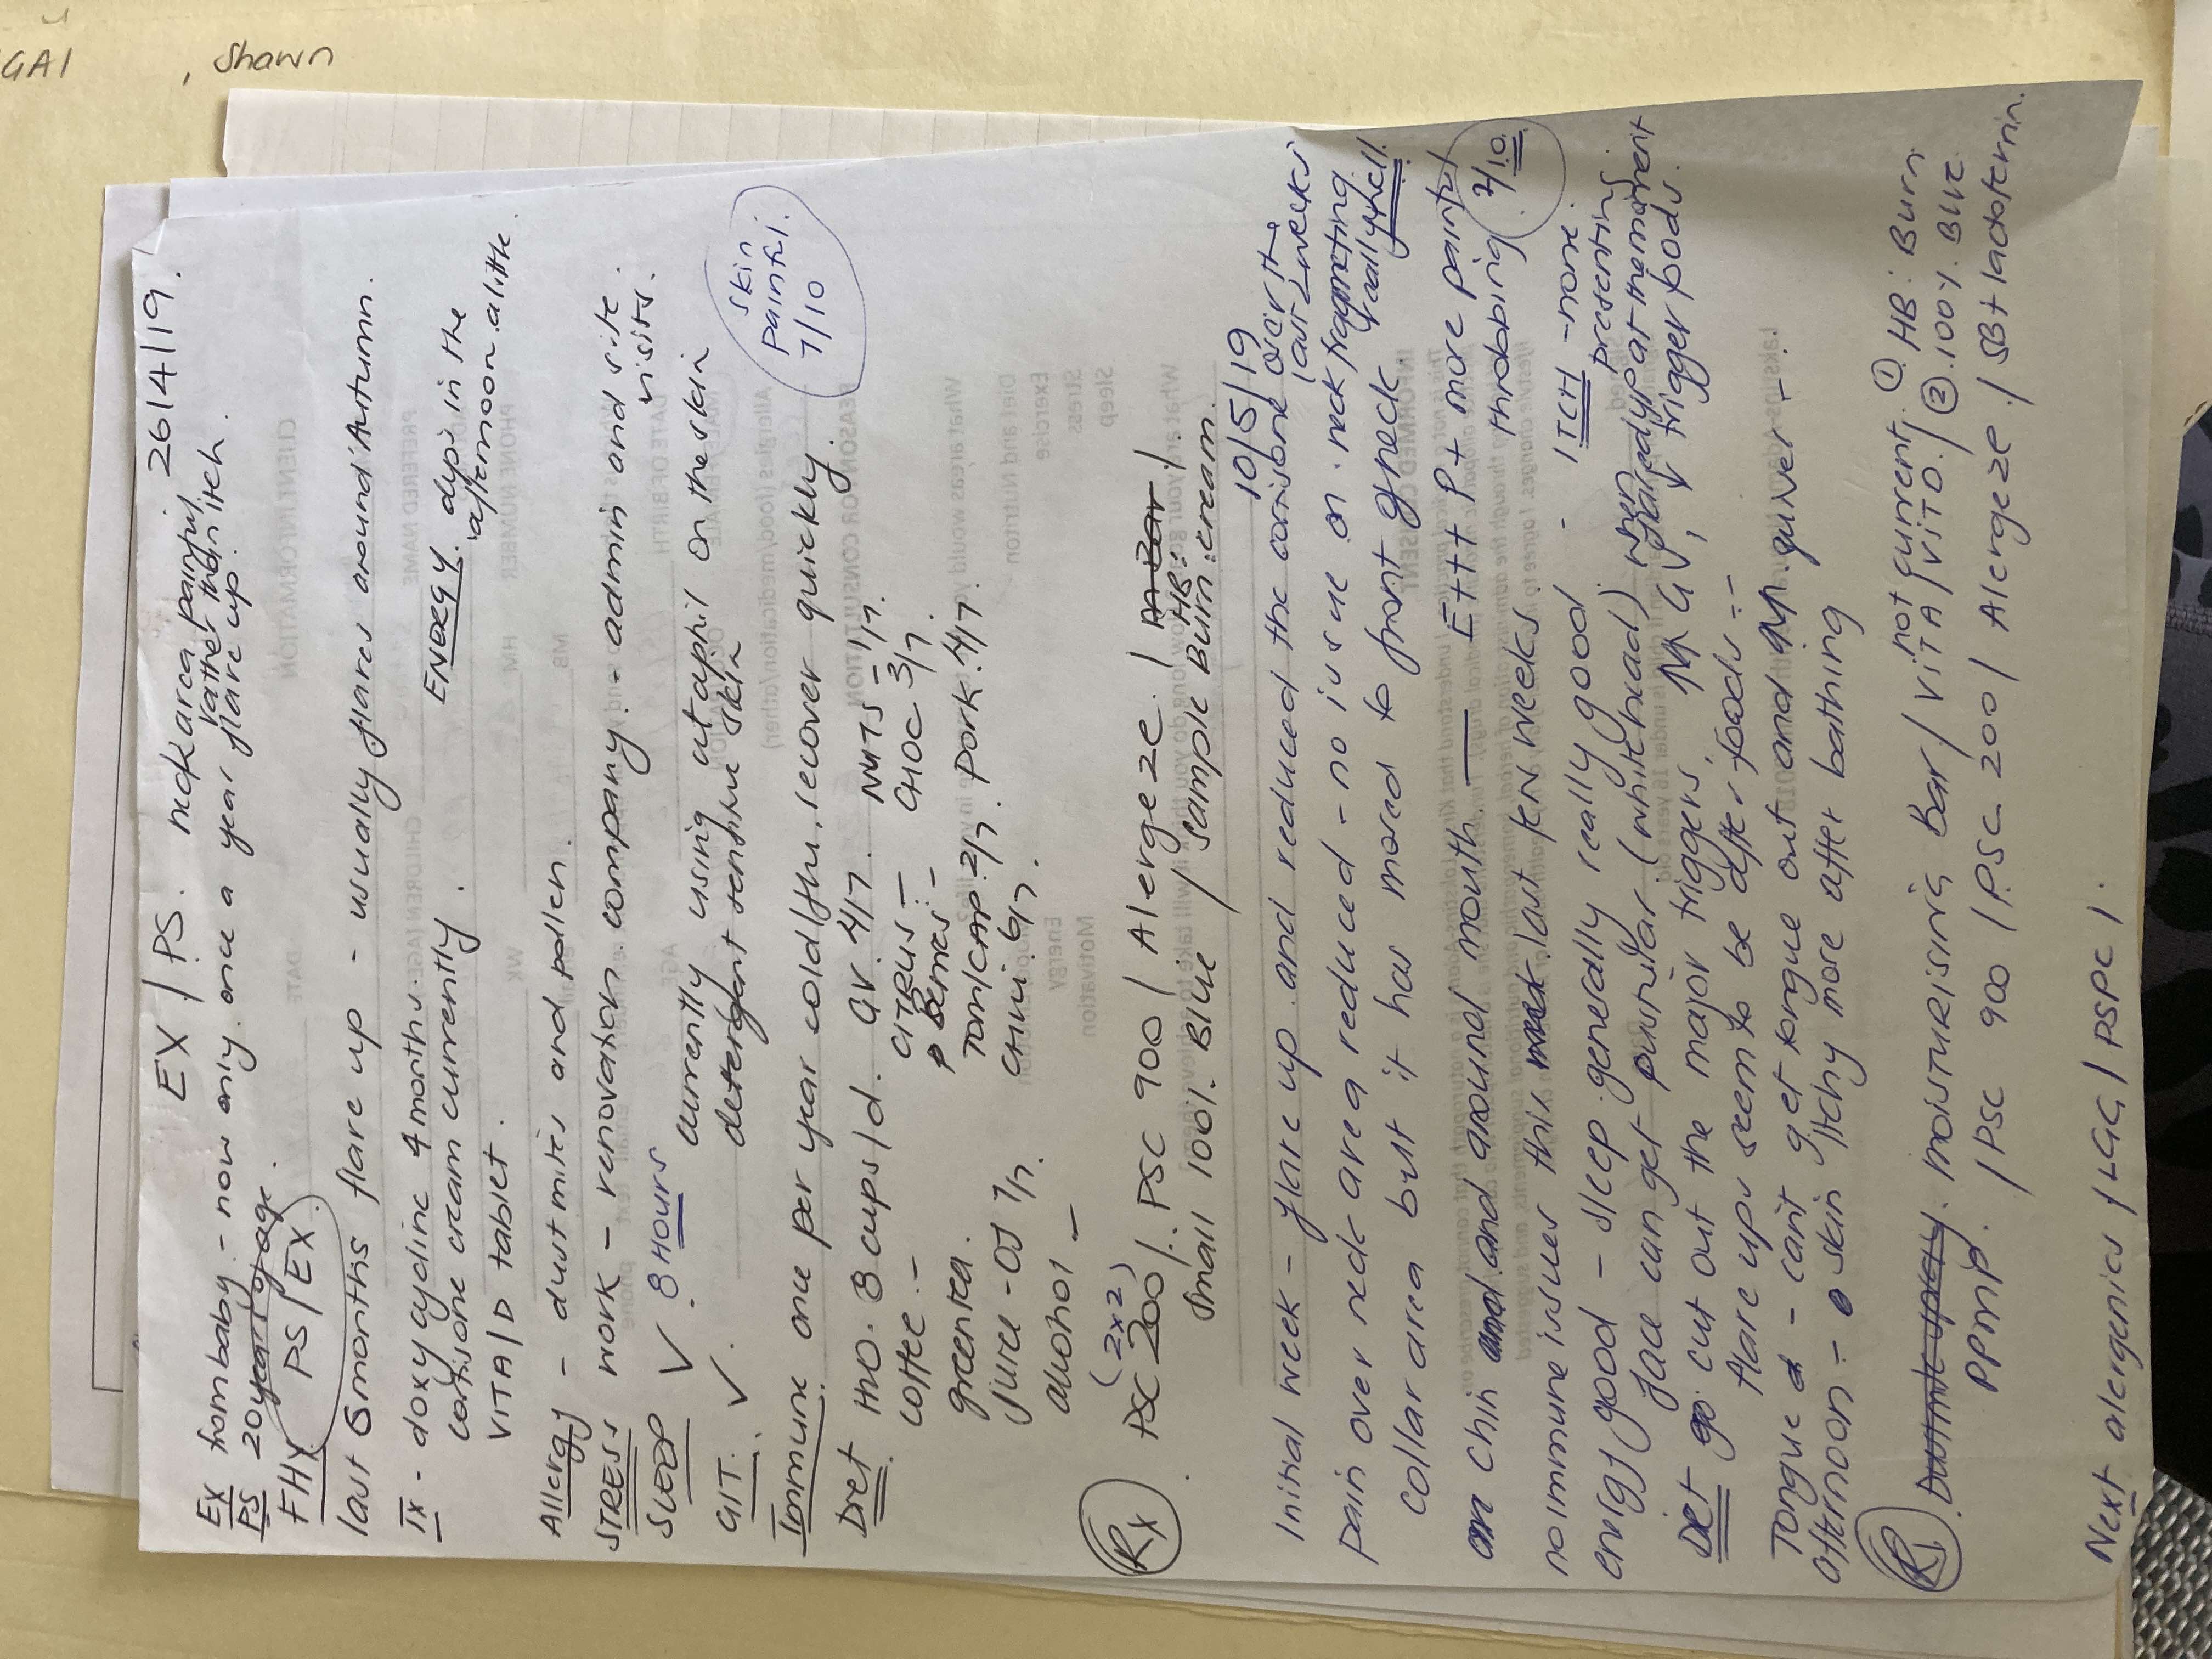 GAI , Shawn
EX / PS. neck area painful 26/4/19.
rather than itch.
Ex from baby - now only once a year flare up.
PS 20 years of age.
FHX PS/EX.
last 6 months flare up - usually flares around Autumn.
Tx - doxycycline 4 months. ENERGY. dips in the
cortisone cream currently. afternoon a little.
VIT A/D tablet.
Allergy - dust mites and pollen.
STRESS work - renovation company - admin and site
visits.
SLEEP ✓ 8 HOURS currently using cetaphil on the skin
GIT. ✓. sensitive skin
Skin
painful.
7/10
Immune one per year cold/flu, recover quickly.
Diet H2O. 8 cups/d. GV. 4/7. NUTS - 1/7.
coffee - CITRUS - CHOC 3/7.
green tea. Berries: -
juice - OJ 1/7. Tom/CAP. 2/7. Pork. 4/7.
alcohol - Chilli 6/7.
(2x2)
Rx PSC 200 /. PSC 900 / Alergeze. / HB: /
Small 100%. Blue / Sample Burn cream.
10/5/19
Initial week - flare up and reduced the cortisone over the
last 2 weeks
pain over neck area reduced - no issue on neck
collar area but it has moved to front of neck
on chin and around mouth — E+++ P+ more painful
throbbing 4/10
no immune issues this last few weeks - ITCH - none
energy good - sleep generally really good presenting
face can get pustular (whitehead) when at the moment
Diet cut out the major triggers. GV, trigger foods.
flare ups seem to be after foods: -
Tongue - can't get tongue out and quiver -
afternoon - skin itchy more after bathing
not current.
Rx moisturising Bar / VIT A / VIT D. / ① HB: Burn
② 100%. Blue
PPMP. / PSC 900 / PSC 200 / Alergeze / SB + lactoferrin.
Next alergenics / LGG / PSPC /.